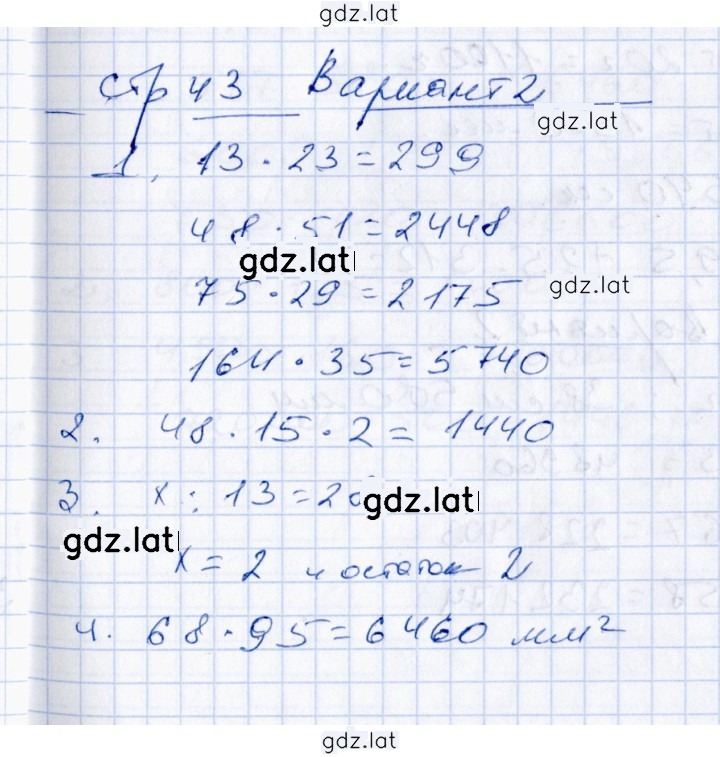 gdz.lat
стр 43 Вариант 2
gdz.lat
1. 13 · 23 = 299
48 · 51 = 2448
gdz.lat
75 · 29 = 2175 gdz.lat
164 · 35 = 5740
2. 48 · 15 · 2 = 1440
3. x : 13 = 2
gdz.lat
gdz.lat
x = 2 и остаток 2
4. 68 · 95 = 6460 мм²
gdz.lat